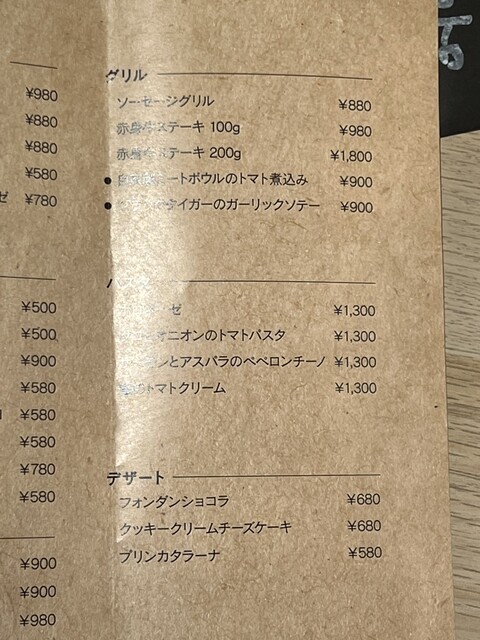 ¥980
¥880
¥880
¥580
ゼ ¥780
¥500
¥500
¥900
¥580
¥580
¥580
¥780
¥580
¥900
¥900
¥980
グリル
ソーセージグリル ¥880
赤身牛ステーキ 100g ¥980
赤身牛ステーキ 200g ¥1,800
ートボウルのトマト煮込み ¥900
タイガーのガーリックソテー ¥900
ゼ ¥1,300
オニオンのトマトパスタ ¥1,300
とアスパラのペペロンチーノ ¥1,300
のトマトクリーム ¥1,300
デザート
フォンダンショコラ ¥680
クッキークリームチーズケーキ ¥680
プリンカタラーナ ¥580